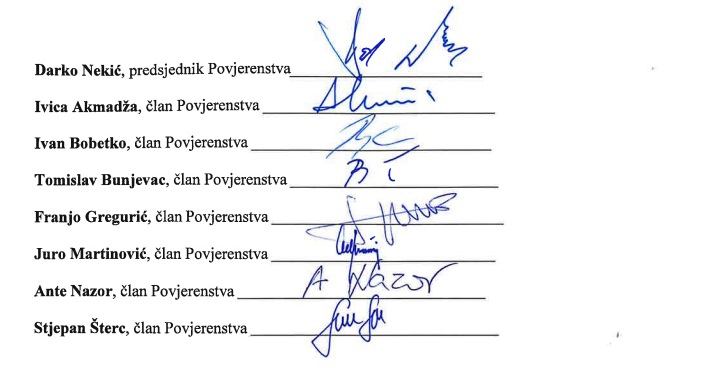 Darko Nekić, predsjednik Povjerenstva
Ivica Akmadža, član Povjerenstva
Ivan Bobetko, član Povjerenstva
Tomislav Bunjevac, član Povjerenstva
Franjo Gregurić, član Povjerenstva
Juro Martinović, član Povjerenstva
Ante Nazor, član Povjerenstva A Nazor
Stjepan Šterc, član Povjerenstva